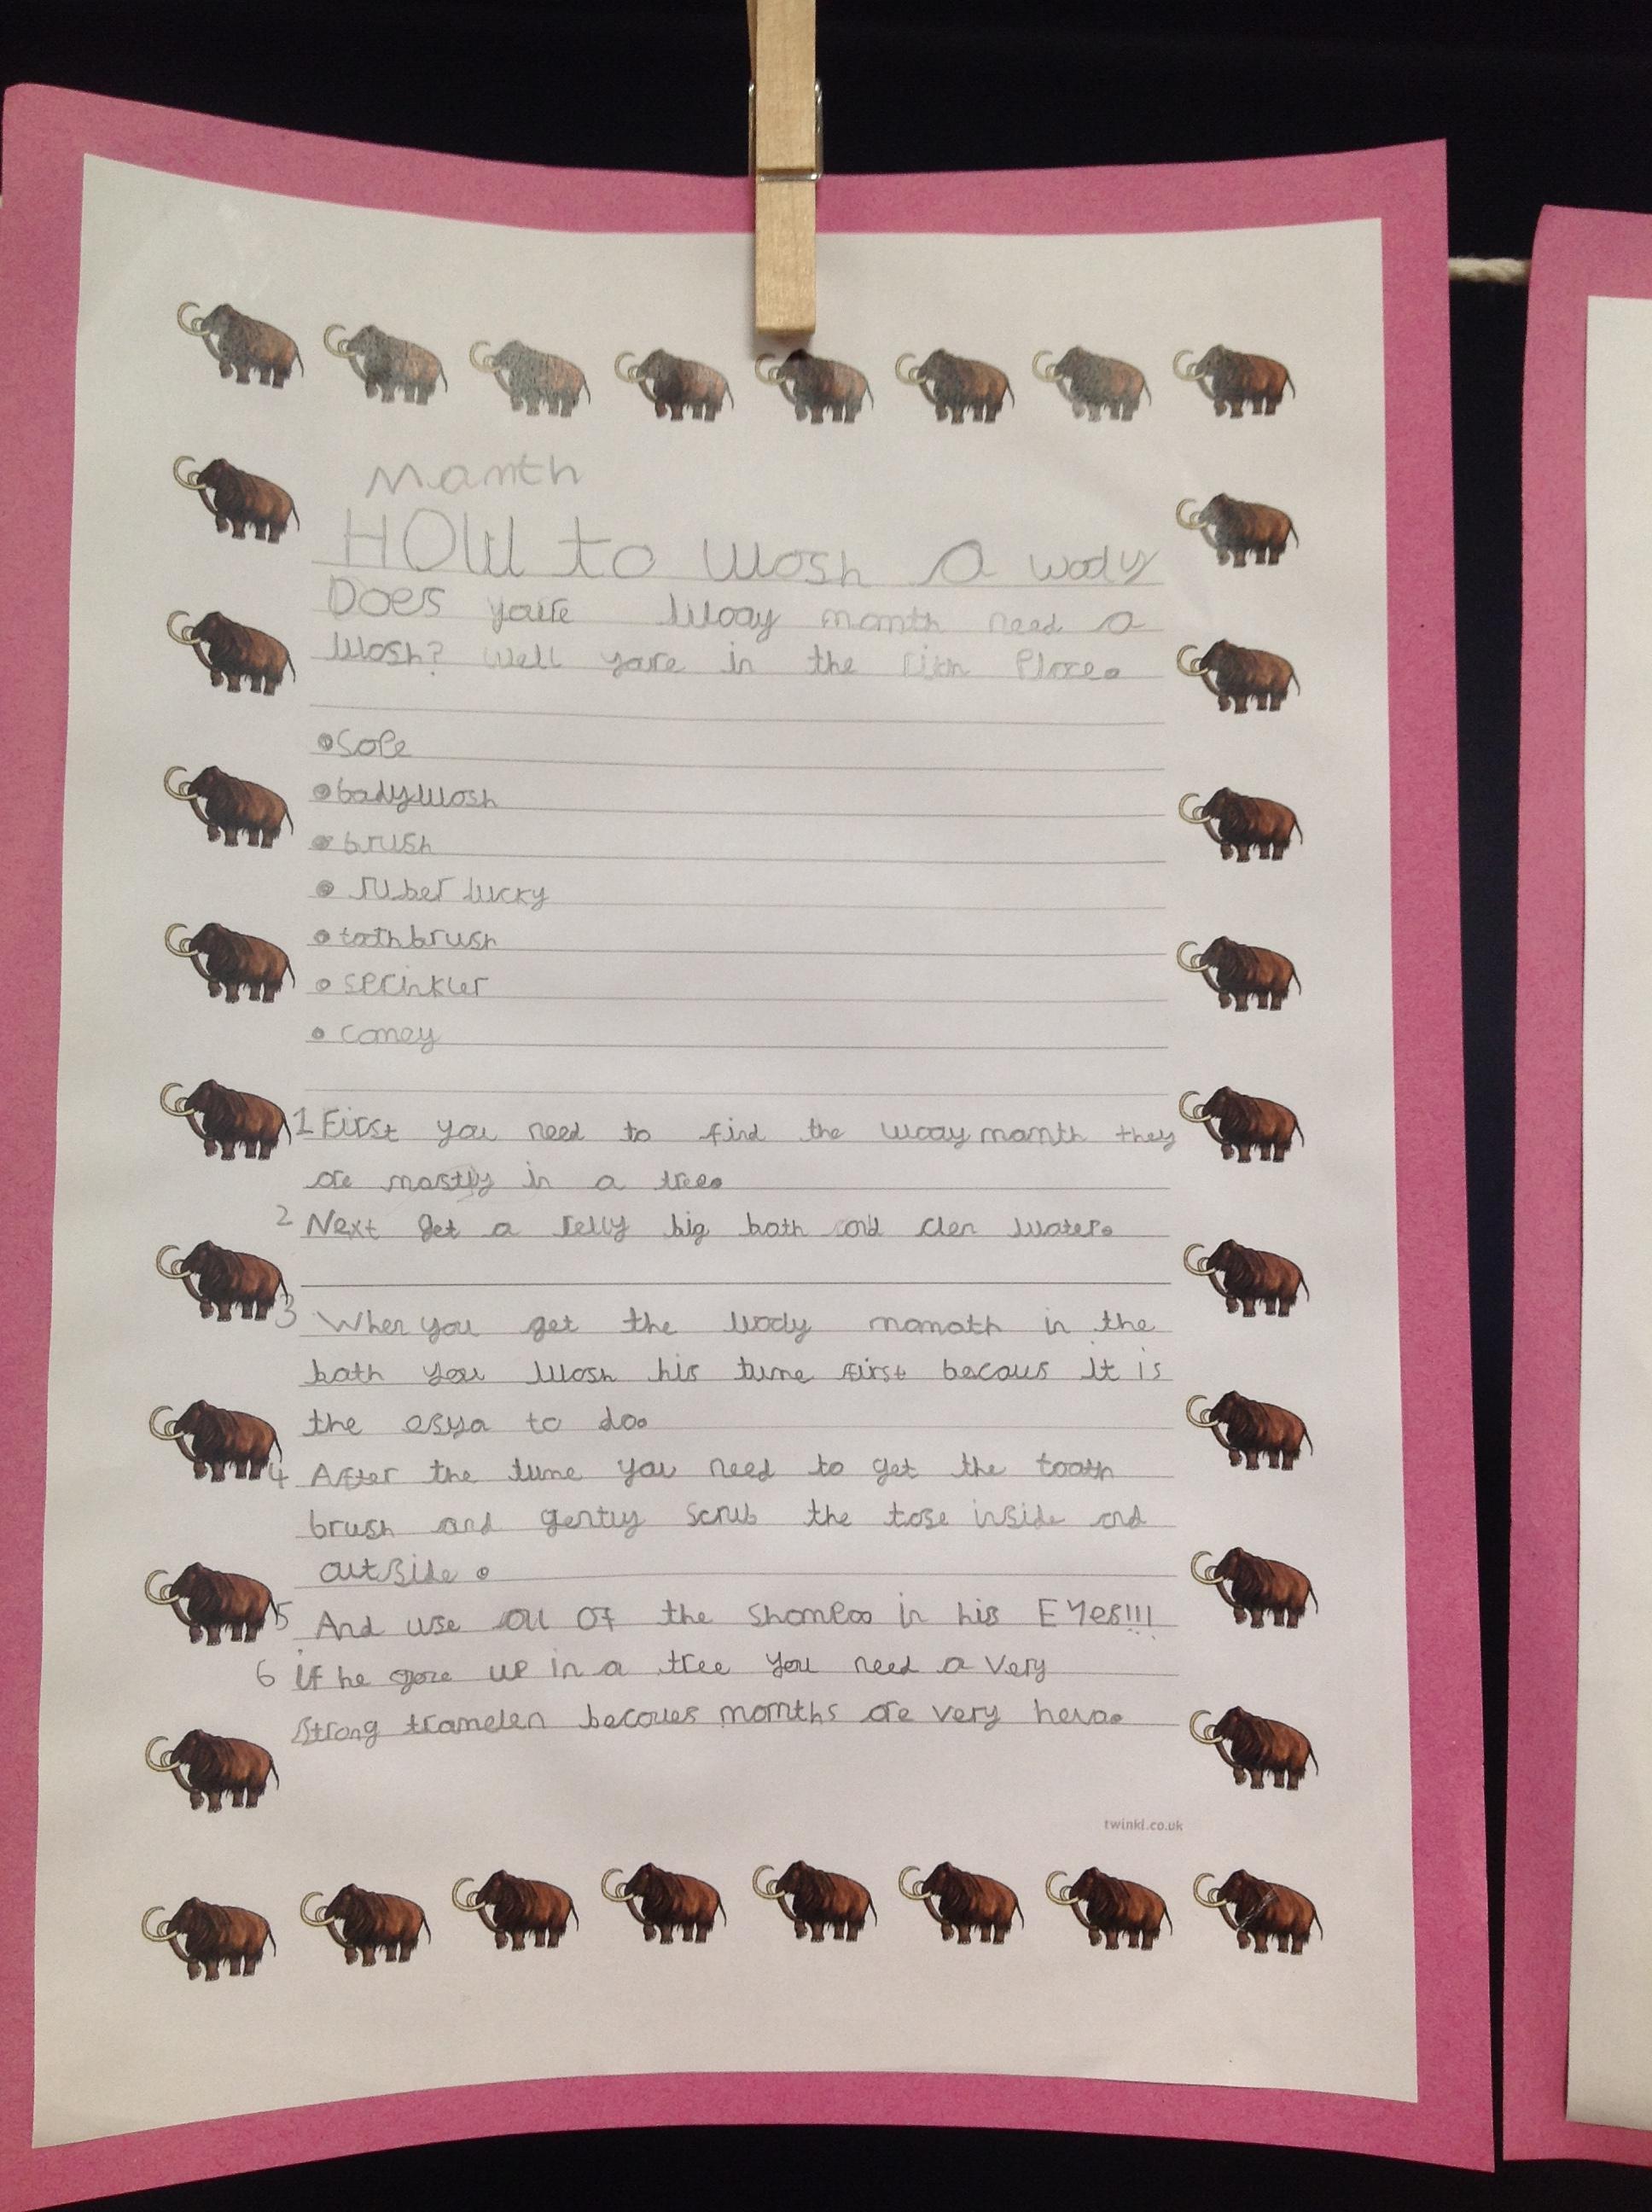 Mamth
HOW to wosh a wooly
Does youre wooy mamth need a
wosh? Well youre in the rith Place.
• Sope
• bodywosh
• brush
• ruber lucky
• toothbrush
• sprinkler
• comey
1 First you need to find the wooymamth they
are mostly in a tree.
2 Next get a relly big bath and clen water.
3 When you get the wooly mamoth in the
bath you wosh his tume first becaus it is
the esya to do.
4 After the tume you need to get the tooth
brush and gently scrub the tose inside and
outside.
5 And use all of the shampoo in his EYes!!!
6 if he goze up in a tree you need a very
strong tramelen becaues momths are very heva.
twinkl.co.uk